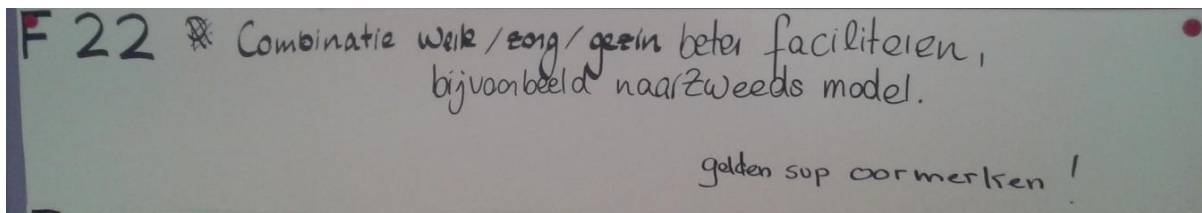 F 22 Combinatie werk/zorg/gezin beter faciliteren,
bijvoorbeeld naar Zweeds model.
gelden sup oormerken!